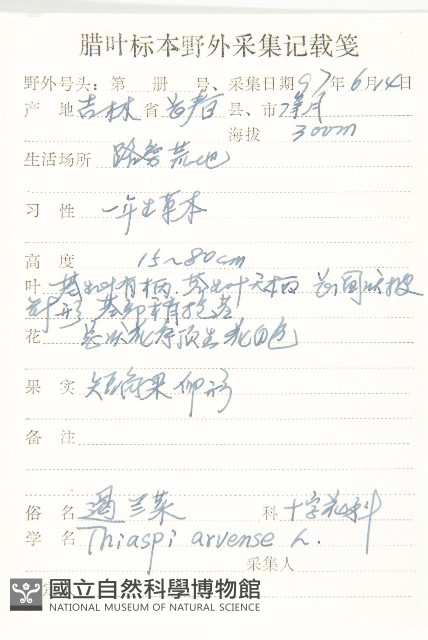 腊叶标本野外采集记载笺
野外号头：第 册 号、采集日期97年6月14日
产 地 吉林 省 县、市 净月
海拔 300m
生活场所 路旁荒地
习 性 一年生草本
高 度 15～80cm
叶 基生叶有柄、茎生叶无柄 长圆状披
针形,基部稍抱茎
花 总状花序顶生 花白色
果 实 短角果
备 注
俗 名 遏兰菜 科 十字花科
学 名 Thlaspi arvense L.
采集人
國立自然科學博物館
NATIONAL MUSEUM OF NATURAL SCIENCE